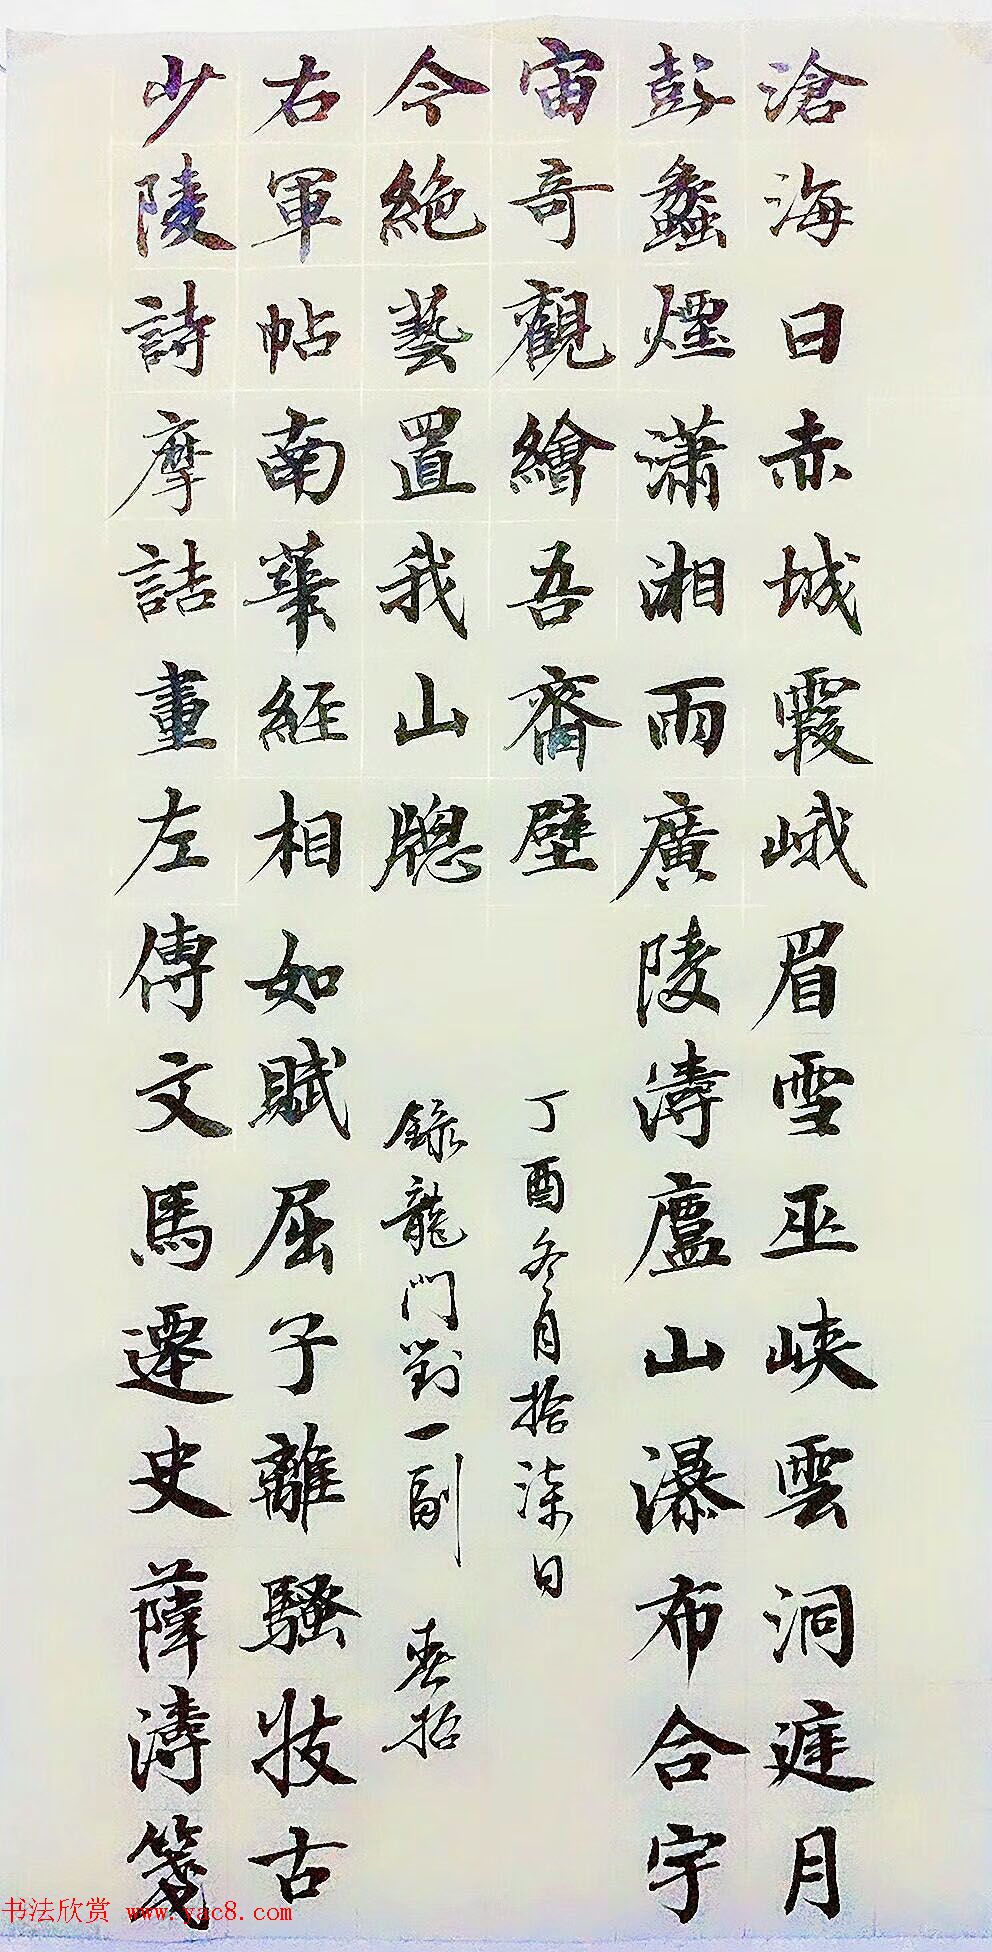 滄海日赤城霞峨眉雪巫峽雲洞庭月
彭蠡煙瀟湘雨廣陵濤廬山瀑布合宇
宙奇觀繪吾齋壁
丁酉冬月拾柒日
少陵詩摩詰畫左傳文馬遷史薛濤箋
右軍帖南華經相如賦屈子離騷收古
今絕藝置我山牕
錄龍門對一副
书法欣赏 www.yac8.com